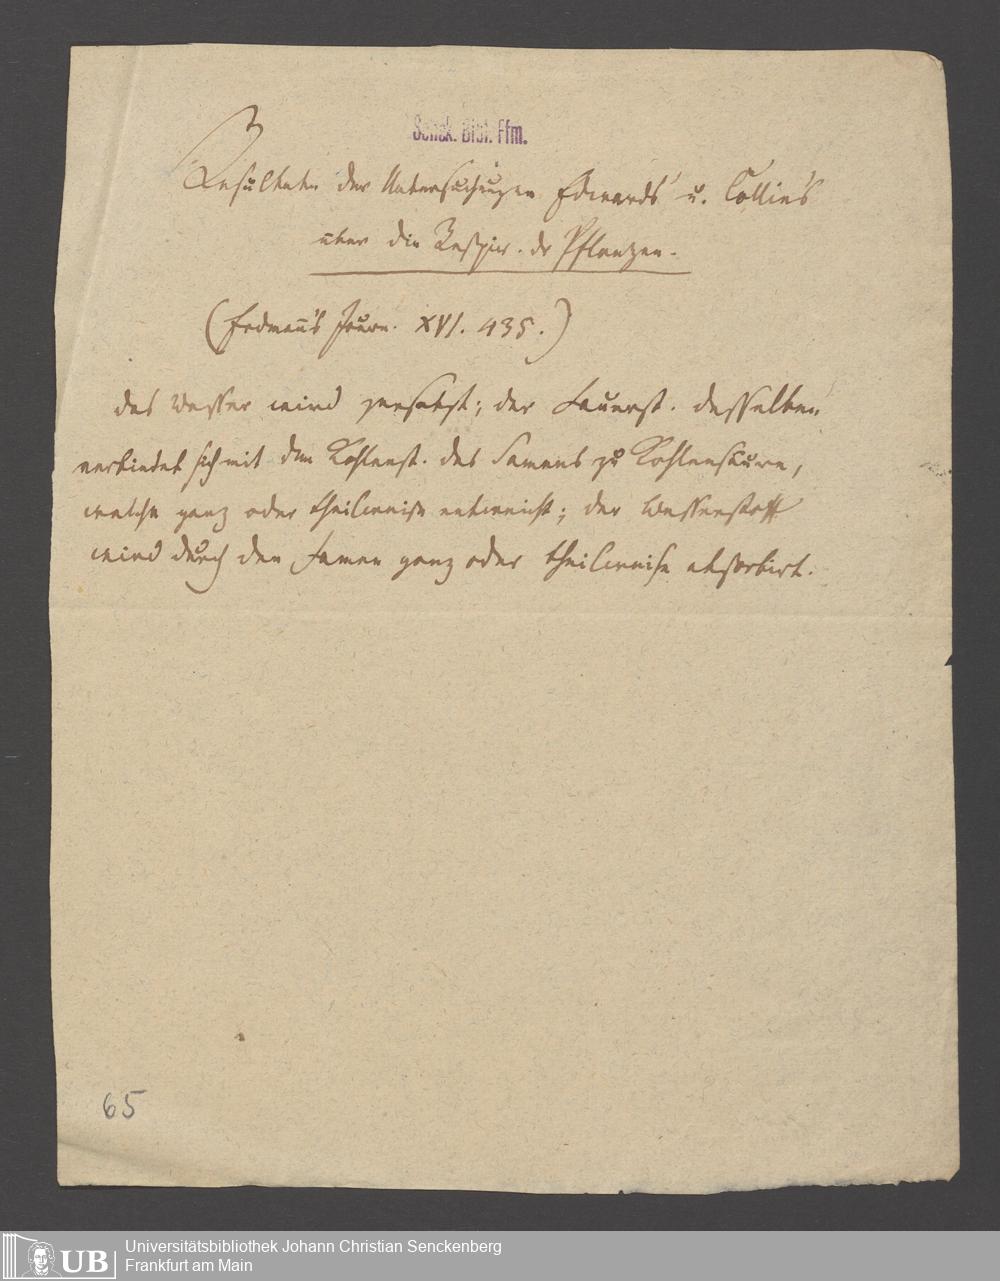 Senck. Bibl. Ffm.
Resultate der Untersuchungen Edwards' u. Collin's
über die Respir. dr Pflanzen.
(Erdmann's Journ. XVI. 435.)
das Wasser wird zersetzt; der Sauerst. desselben
verbindet sich mit dem Kohlenst. des Samens zu Kohlensäure,
welche ganz oder theilweise entweicht; der Wasserstoff
wird durch den Samen ganz oder theilweise absorbirt.
65
UB
Universitätsbibliothek Johann Christian Senckenberg
Frankfurt am Main